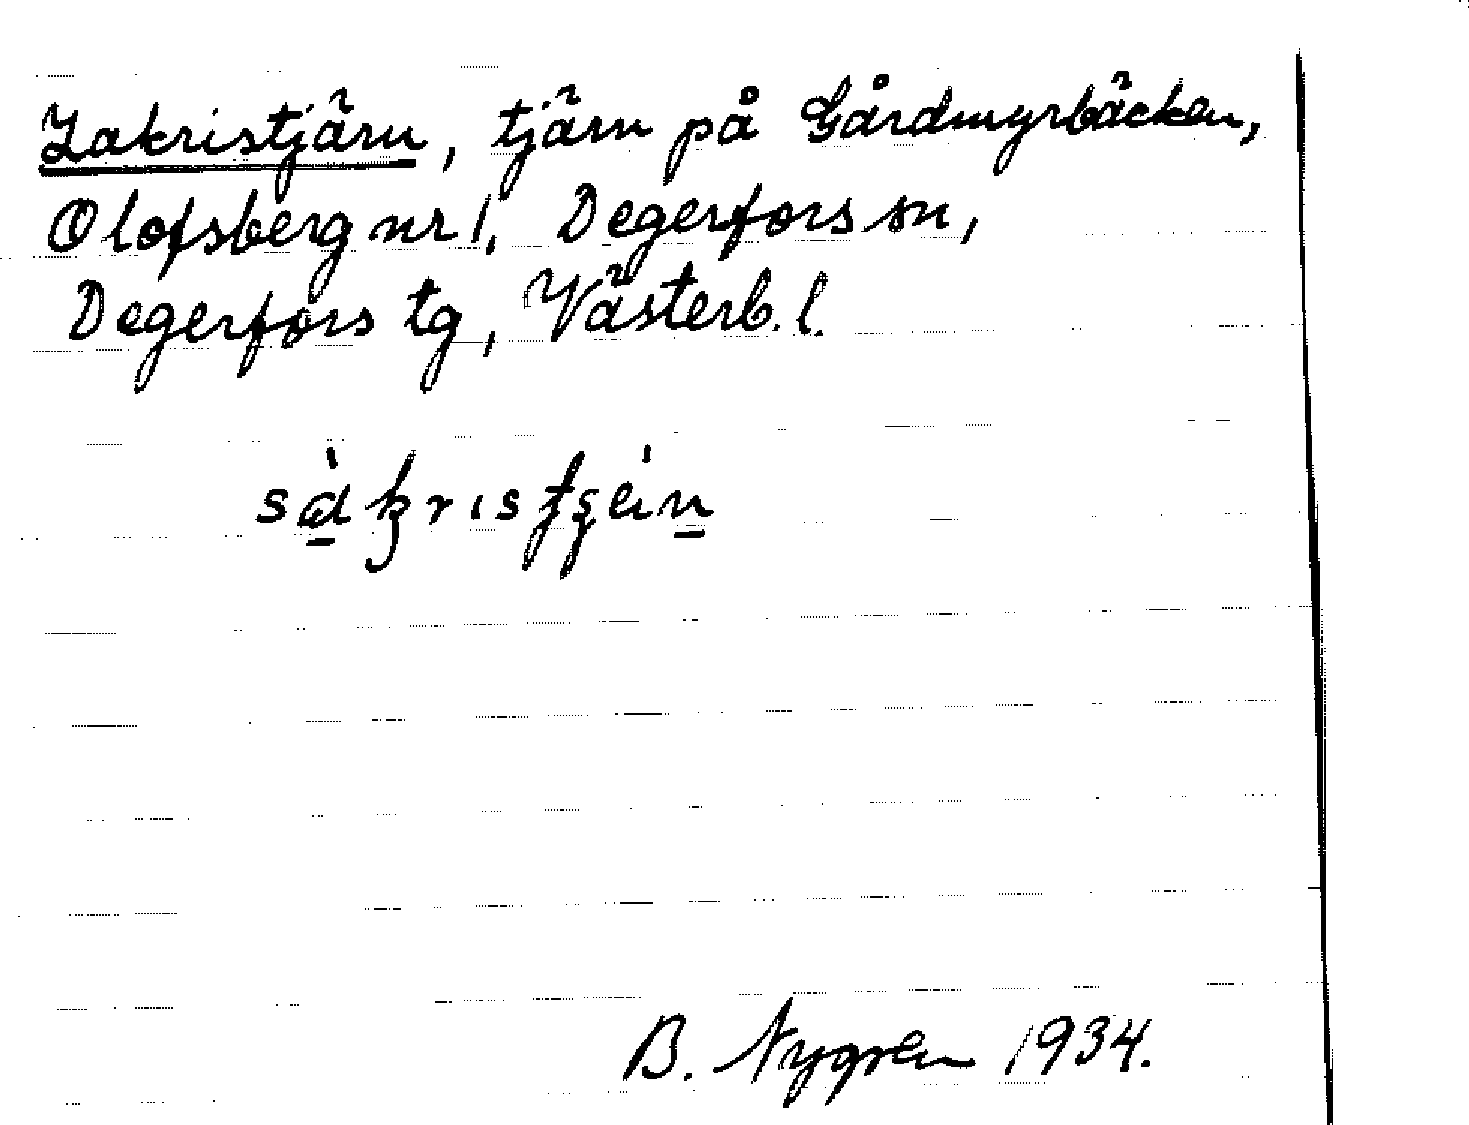 Zakristjärn, tjärn på Gårdmyrbäcken,
Olofsberg nr 1, Degerfors sn,
Degerfors tg, Västerb. l.
B. Nygren 1934.